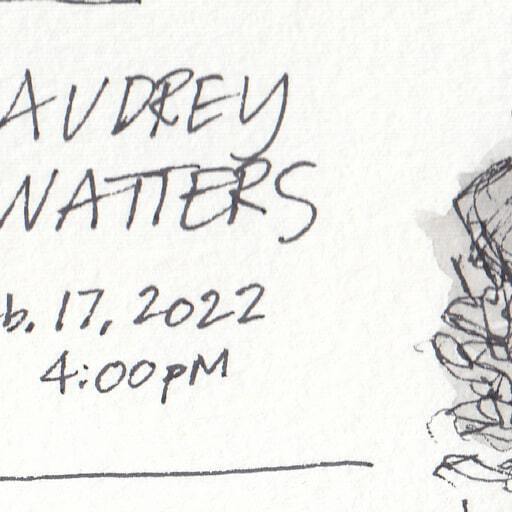 AUDREY
WATTERS
b. 17, 2022
4:00pM